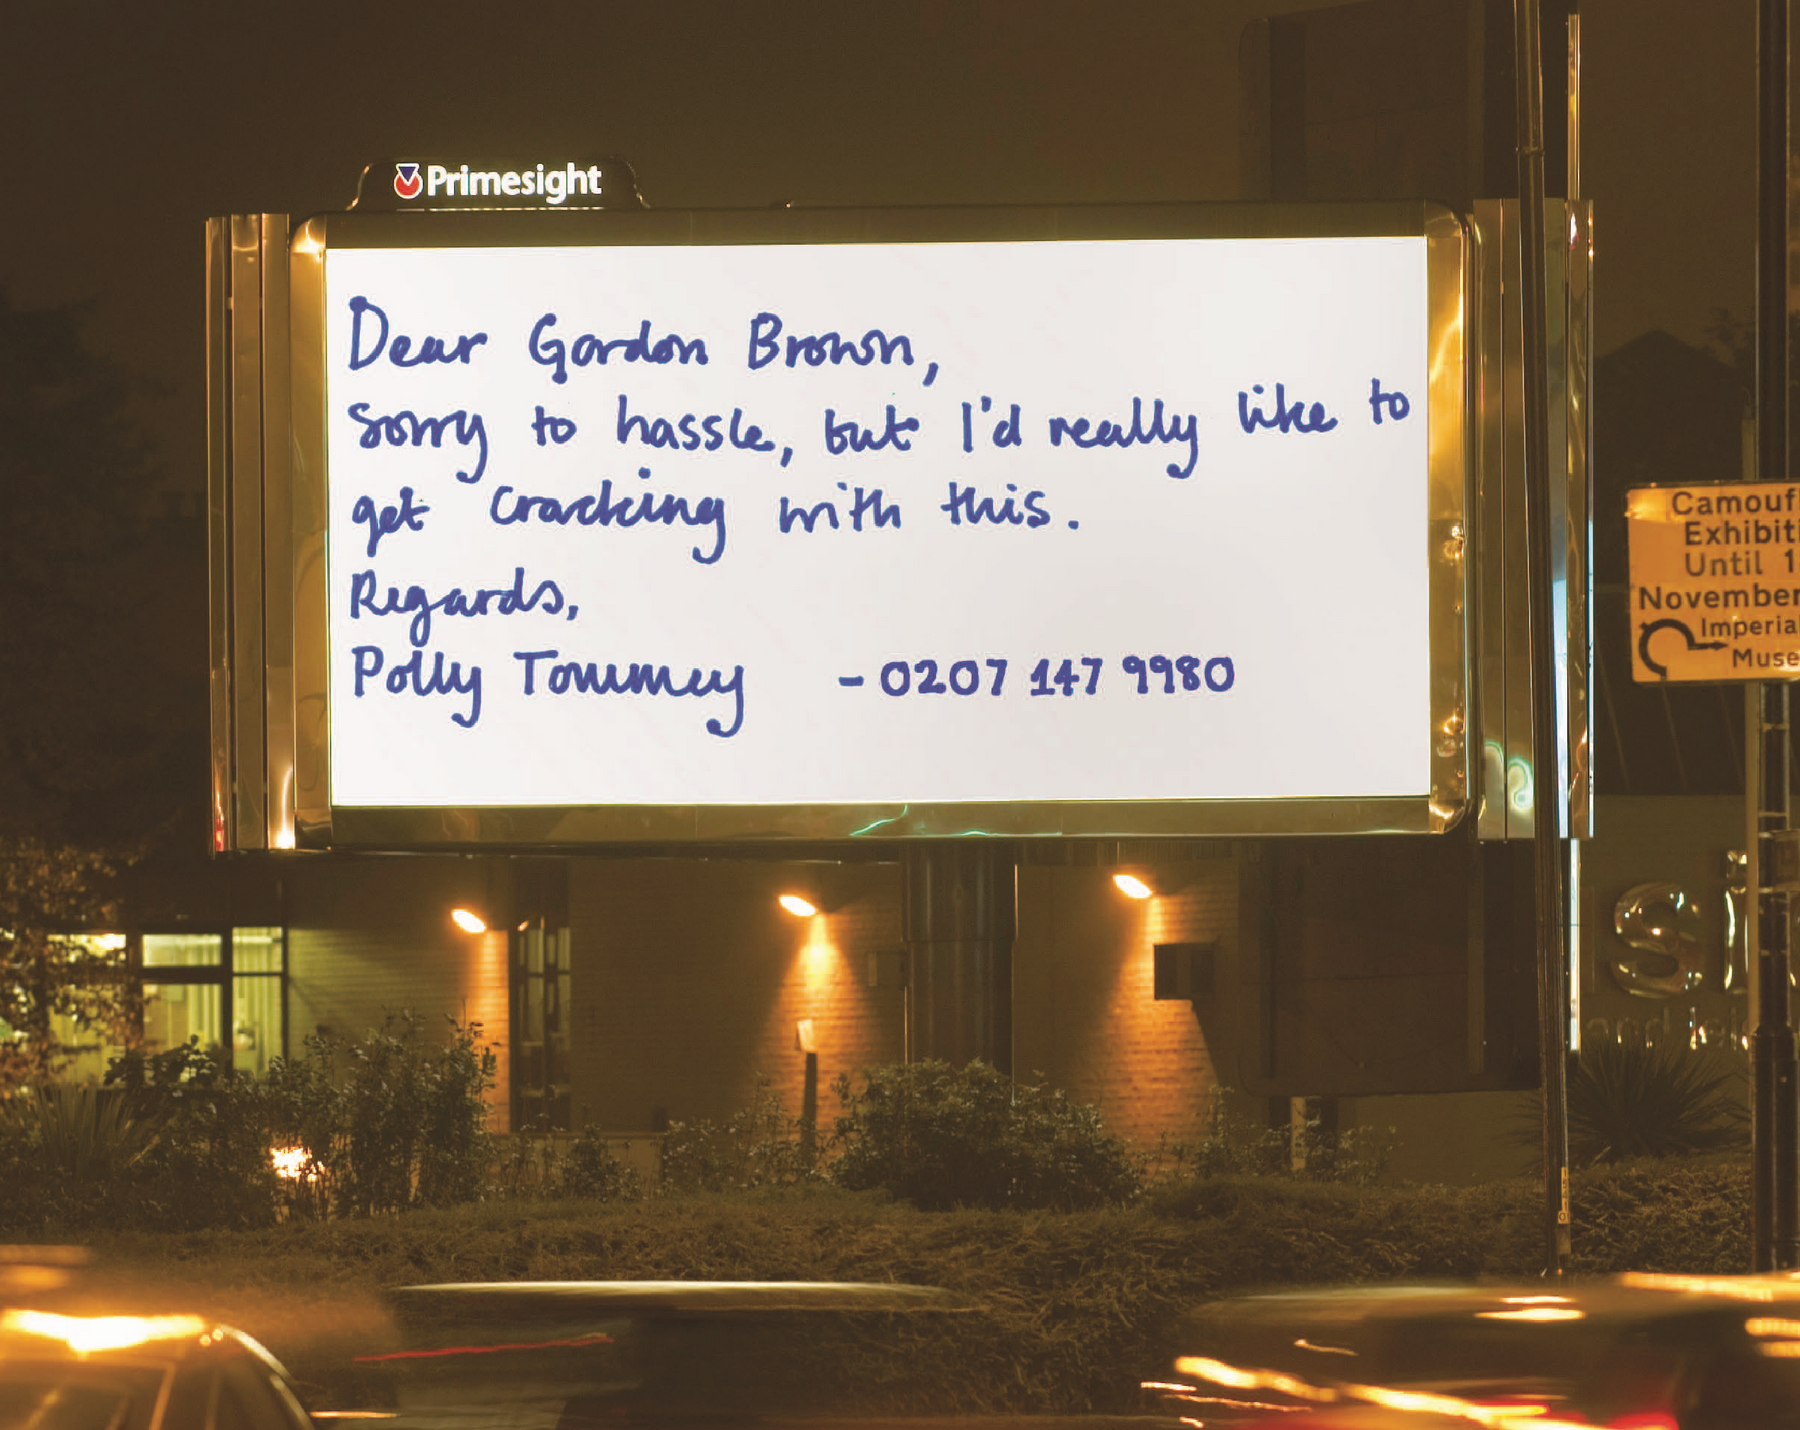 Primesight
Dear Gordon Brown,
sorry to hassle, but I'd really like to
get cracking with this.
Regards,
Polly Tommey - 0207 147 9980
Camoufl
Exhibiti
Until 1
November
Imperial
Muse
Si